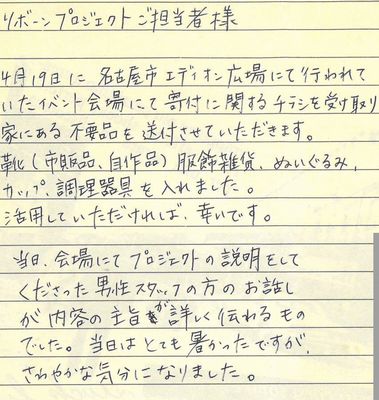 リボーンプロジェクトご担当者様
4月19日に名古屋市エディオン広場にて行われて
いたイベント会場にて寄付に関するチラシを受け取り
家にある不要品を送付させていただきます。
靴(市販品、自作品)服飾雑貨、ぬいぐるみ、
カップ、調理器具を入れました。
活用していただければ、幸いです。
当日、会場にてプロジェクトの説明をして
くださった男性スタッフの方のお話し
が内容の主旨が詳しく伝わるもの
でした。当日はとても暑かったですが、
さわやかな気分になりました。